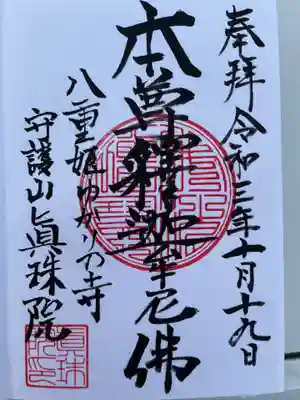 奉拝 令和三年十月十九日
本尊釋迦牟尼佛
八重姫ゆかりの寺
守護山眞珠院